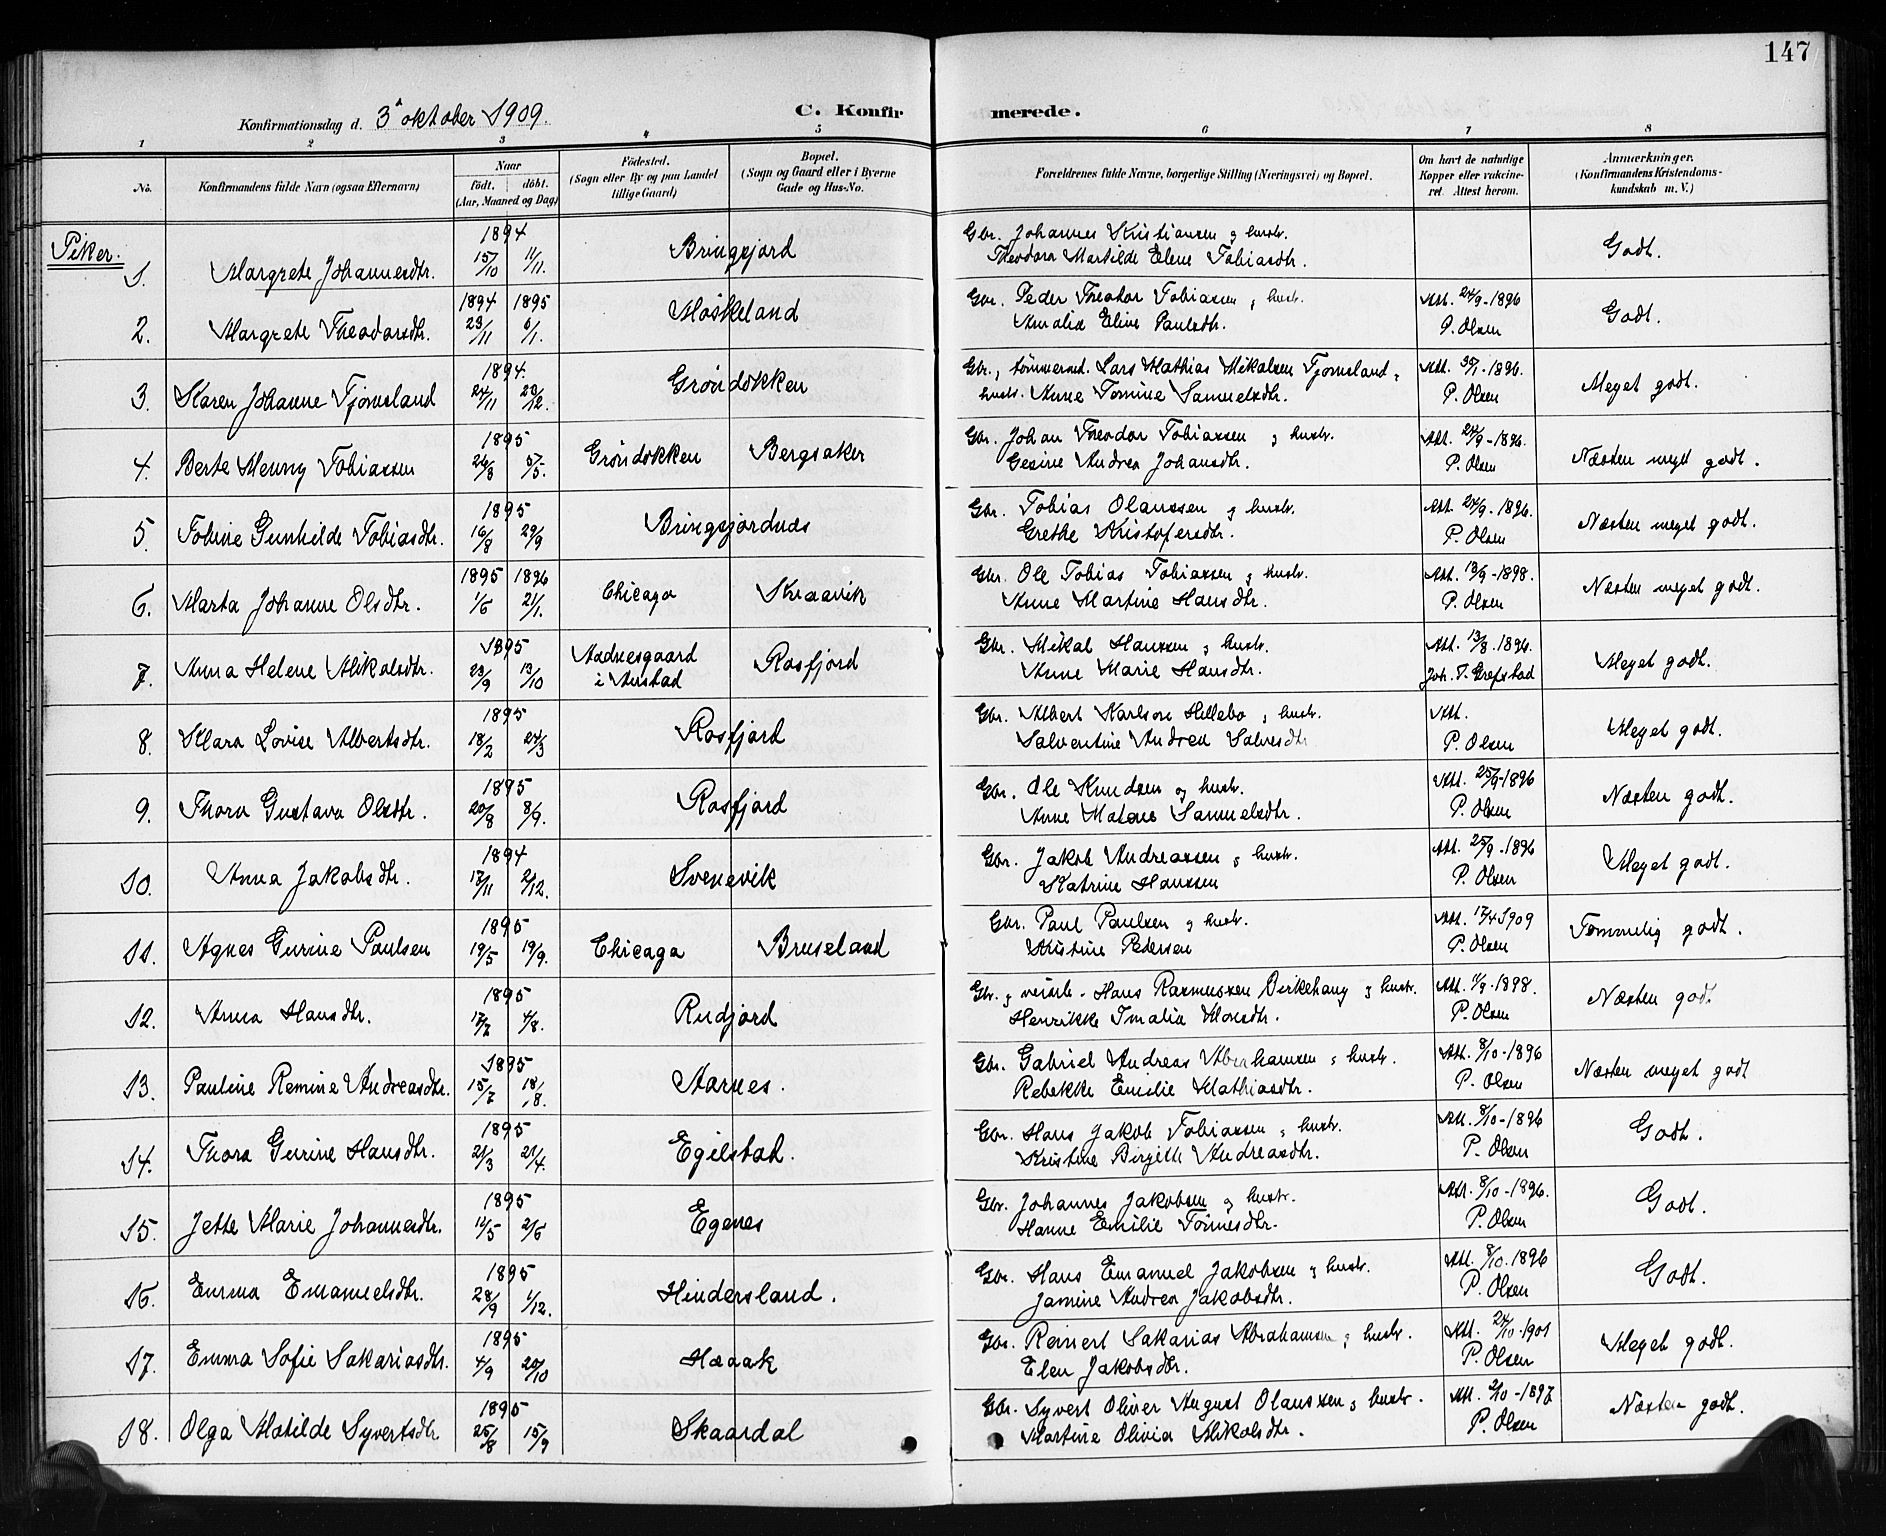 147
Konfirmationsdag d. 3 oktober 1909. C. Konfirmerede.
1 2 3 4 5 6 7 8
No. Konfirmandens fulde Navn (ogsaa Efternavn) Naar født. døbt. (Aar, Maaned og Dag) Fødested. (Sogn eller By og paa Landet tillige Gaard) Bopæl. (Sogn og Gaard eller i Byerne Gade og Hus-No. Forældrenes fulde Navne, borgerlige Stilling (Næringsvei) og Bopæl. Om havt de naturlige Kopper eller vaccineret. Attest herom. Anmærkninger. (Konfirmandens Kristendomskundskab m. V.)
Piker.
1. Margrete Johannesdtr. 1894 15/10 11/11. Bringsjord Gbr. Johannes Kristiansen og hustr. Theodora Martilde Elene Tobiasdtr. Godt.
2. Margrete Theodorsdtr. 1894 23/11 1895 6/1. Møskeland Gbr. Peder Theodor Tobiassen og hustr. Amalia Eline Paulsdtr. Att. 24/9-1896 P. Olsen Godt.
3. Karen Johanne Tjomsland 1894. 24/11 23/12. Grøndokken Gbr. og tømmermd. Lars Mathias Mikalsen Tjomsland og hustr. Anne Tomine Samuelsdtr. Att. -1896. P. Olsen Meget godt.
4. Berte Menny Tobiassen 1895 26/3 5/5. Grøndokken Bergsaker Gbr. Johan Theodor Tobiassen og hustr. Gesine Andrea Johansdtr. Att. 24/9-1896. P. Olsen Næsten meget godt.
5. Tobine Gunhilde Tobiasdtr. 1895 16/8 29/9 Bringsjordnes Gbr. Tobias Olaussen og hustr. Grethe Kristofersdtr. Att. 24/9-1896. P. Olsen Næsten meget godt.
6. Marta Johanne Olsdtr. 1895 1/6 1896 21/1. Chicago Kraavik Gbr. Ole Tobias Tobiassen og hustr. Anne Martine Hansdtr. Att. 13/9-1898. P. Olsen Næsten meget godt.
7. Anna Helene Mikalsdtr. 1895 23/9 13/10 Aadnesgaard i Austad Rosfjord Gbr. Mikal Hanssen og hustr. Anne Marie Hansdtr. Att. 13/8.1896. Joh. T. Grefstad Meget godt.
8. Klara Lovise Albertsdtr. 1895 18/2 24/3 Rosfjord Gbr. Albert Karlson Hillebo og hustr. Salventine Andrea Salvesdtr Att. P. Olsen Meget godt.
9. Thora Gustava Olsdtr. 1895 20/8 8/9. Rosfjord Gbr. Ole Knudsen og hustr. Anne Malene Samuelsdtr. Att. 25/9-1896 P. Olsen Næsten godt.
10. Anna Jakobsdtr. 1894 17/11 2/12. Svenevik Gbr. Jakob Andreassen og hustr. Katrine Hanssen Att. 25/9-1896 P. Olsen Meget godt.
11. Agnes Gurine Paulsen 1895 19/5 19/9. Chicago Bruseland Gbr. Paul Paulsen og hustr. Kristine Pedersen Att. 17/4 1909 P. Olsen Temmelig godt.
12. Anna Hansdtr. 1895 17/7 4/8. Rudjord Gbr. og veiarb. Hans Rasmussen Birkehaug og hustr. Henrikke Tmalia Monsdtr. Att. 11/9-1898. P. Olsen Næsten godt.
13. Pauline Remine Andreasdtr. 1895 15/7 18/8. Aarnes. Gbr. Gabriel Andreas Abrahamsen og hustr. Rebekke Emilie Mathiasdtr. Att. 8/10-1896 P. Olsen Næsten meget godt
14. Thora Gurine Hansdtr. 1895 21/3 21/4. Egilstad. Gbr. Hans Jakob Tobiassen og hustr. Kristine Birgitte Andreasdtr. Att. 8/10-1896 P. Olsen Godt.
15. Jette Marie Johannesdtr. 1895 12/5 2/6 Egenes Gbr. Johannes Jakobsen og hustr. Hanne Emilie Tønnesdtr. Att. 8/10-1896. P. Olsen Godt.
16. Emma Emanuelsdtr. 1895 28/9 1/12. Hindersland. Gbr. Hans Emanuel Jakobsen og hustr. Jamine Andrea Jakobsdtr. Att. 8/10.1896 P. Olsen Godt.
17. Emma Sofie Sakariasdtr. 1895 4/9 20/10 Haaak Gbr. Reinert Sakarias Abrahamsen og hustr. Elen Jakobsdtr. Att. 24/10-1901 P. Olsen Meget godt.
18. Olga Matilde Syvertsdtr 1895 25/8 15/9 Skaardal Gbr. Syvert Oliver August Olaussen og hustr. Martine Olivia Mikalsdtr. Att. 2/10-1897 P. Olsen Næsten godt.